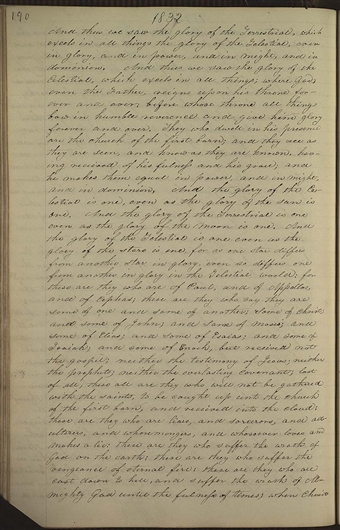 190
1832
And thus we saw the glory of the Terrestrial, which
excels in all things the glory of the Telestial, even
in glory, and in power, and in might, and in
dominion. And thus we saw the glory of the
Celestial, which excels in all things; where God,
even the Father, reigns upon his throne for-
ever and ever; before whose throne all things
bow in humble reverence and give him glory
forever and ever. They who dwell in his presence
are the church of the first born; and they see as
they are seen, and know as they are known, hav-
ing received of his fulness and his grace; and
he makes them equal in power, and in might,
and in dominion. And the glory of the Ce-
lestial is one, even as the glory of the sun is
one. And the glory of the Terrestrial is one
even as the glory of the moon is one. And
the glory of the Telestial is one even as the
glory of the stars is one, for as one star differs
from another star in glory, even so differs one
from another in glory in the Telestial world; for
these are they who are of Paul, and of Apollos,
and of Cephas; these are they who say they are
some of one and some of another; some of Christ
and some of John; and some of Moses; and
some of Elias; and some of Esaias; and some of
Isaiah; and some of Enoch, but received not
the gospel; neither the testimony of Jesus; neither
the prophets; neither the everlasting covenant; last
of all, these all are they who will not be gathered
with the saints, to be caught up unto the church
of the first born, and received into the cloud:
these are they who are liars, and sorcerers, and ad-
ulterers, and whoremongers, and whosoever loves and
makes a lie; these are they who suffer the wrath of
God on the earth; these are they who suffer the
vengeance of eternal fire; these are they who are
cast down to hell, and suffer the wrath of Al-
mighty God until the fulness of times; when Christ